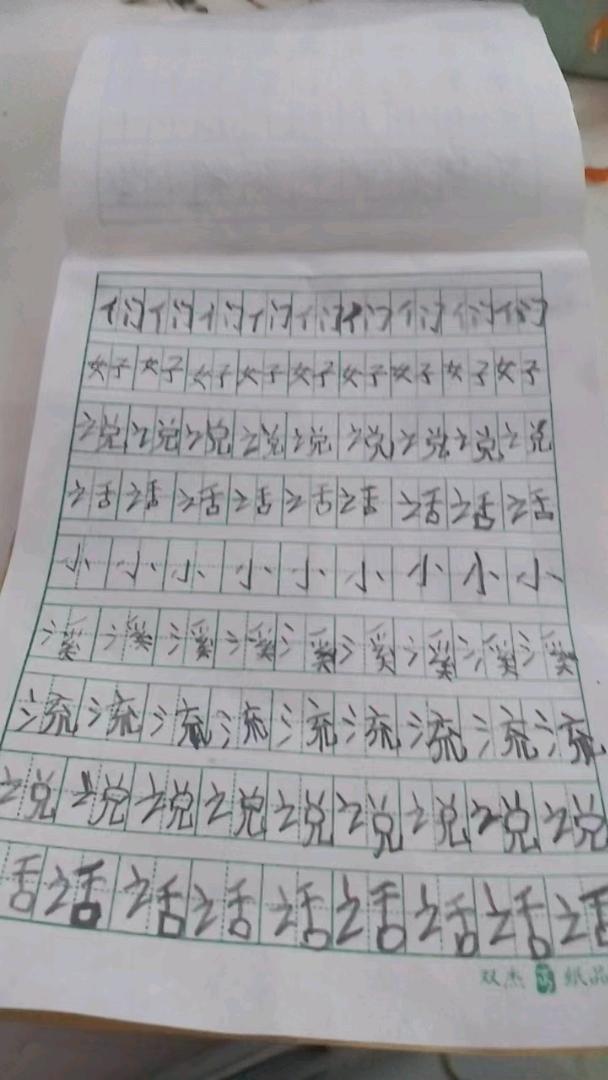 们们们们们们们们们
好好好好好好好好好
说说说说说说说说说
话话话话话话话话话
小小小小小小小小小
溪溪溪溪溪溪溪溪溪
流流流流流流流流流
说说说说说说说说说
话话话话话话话话话
双杰 纸品